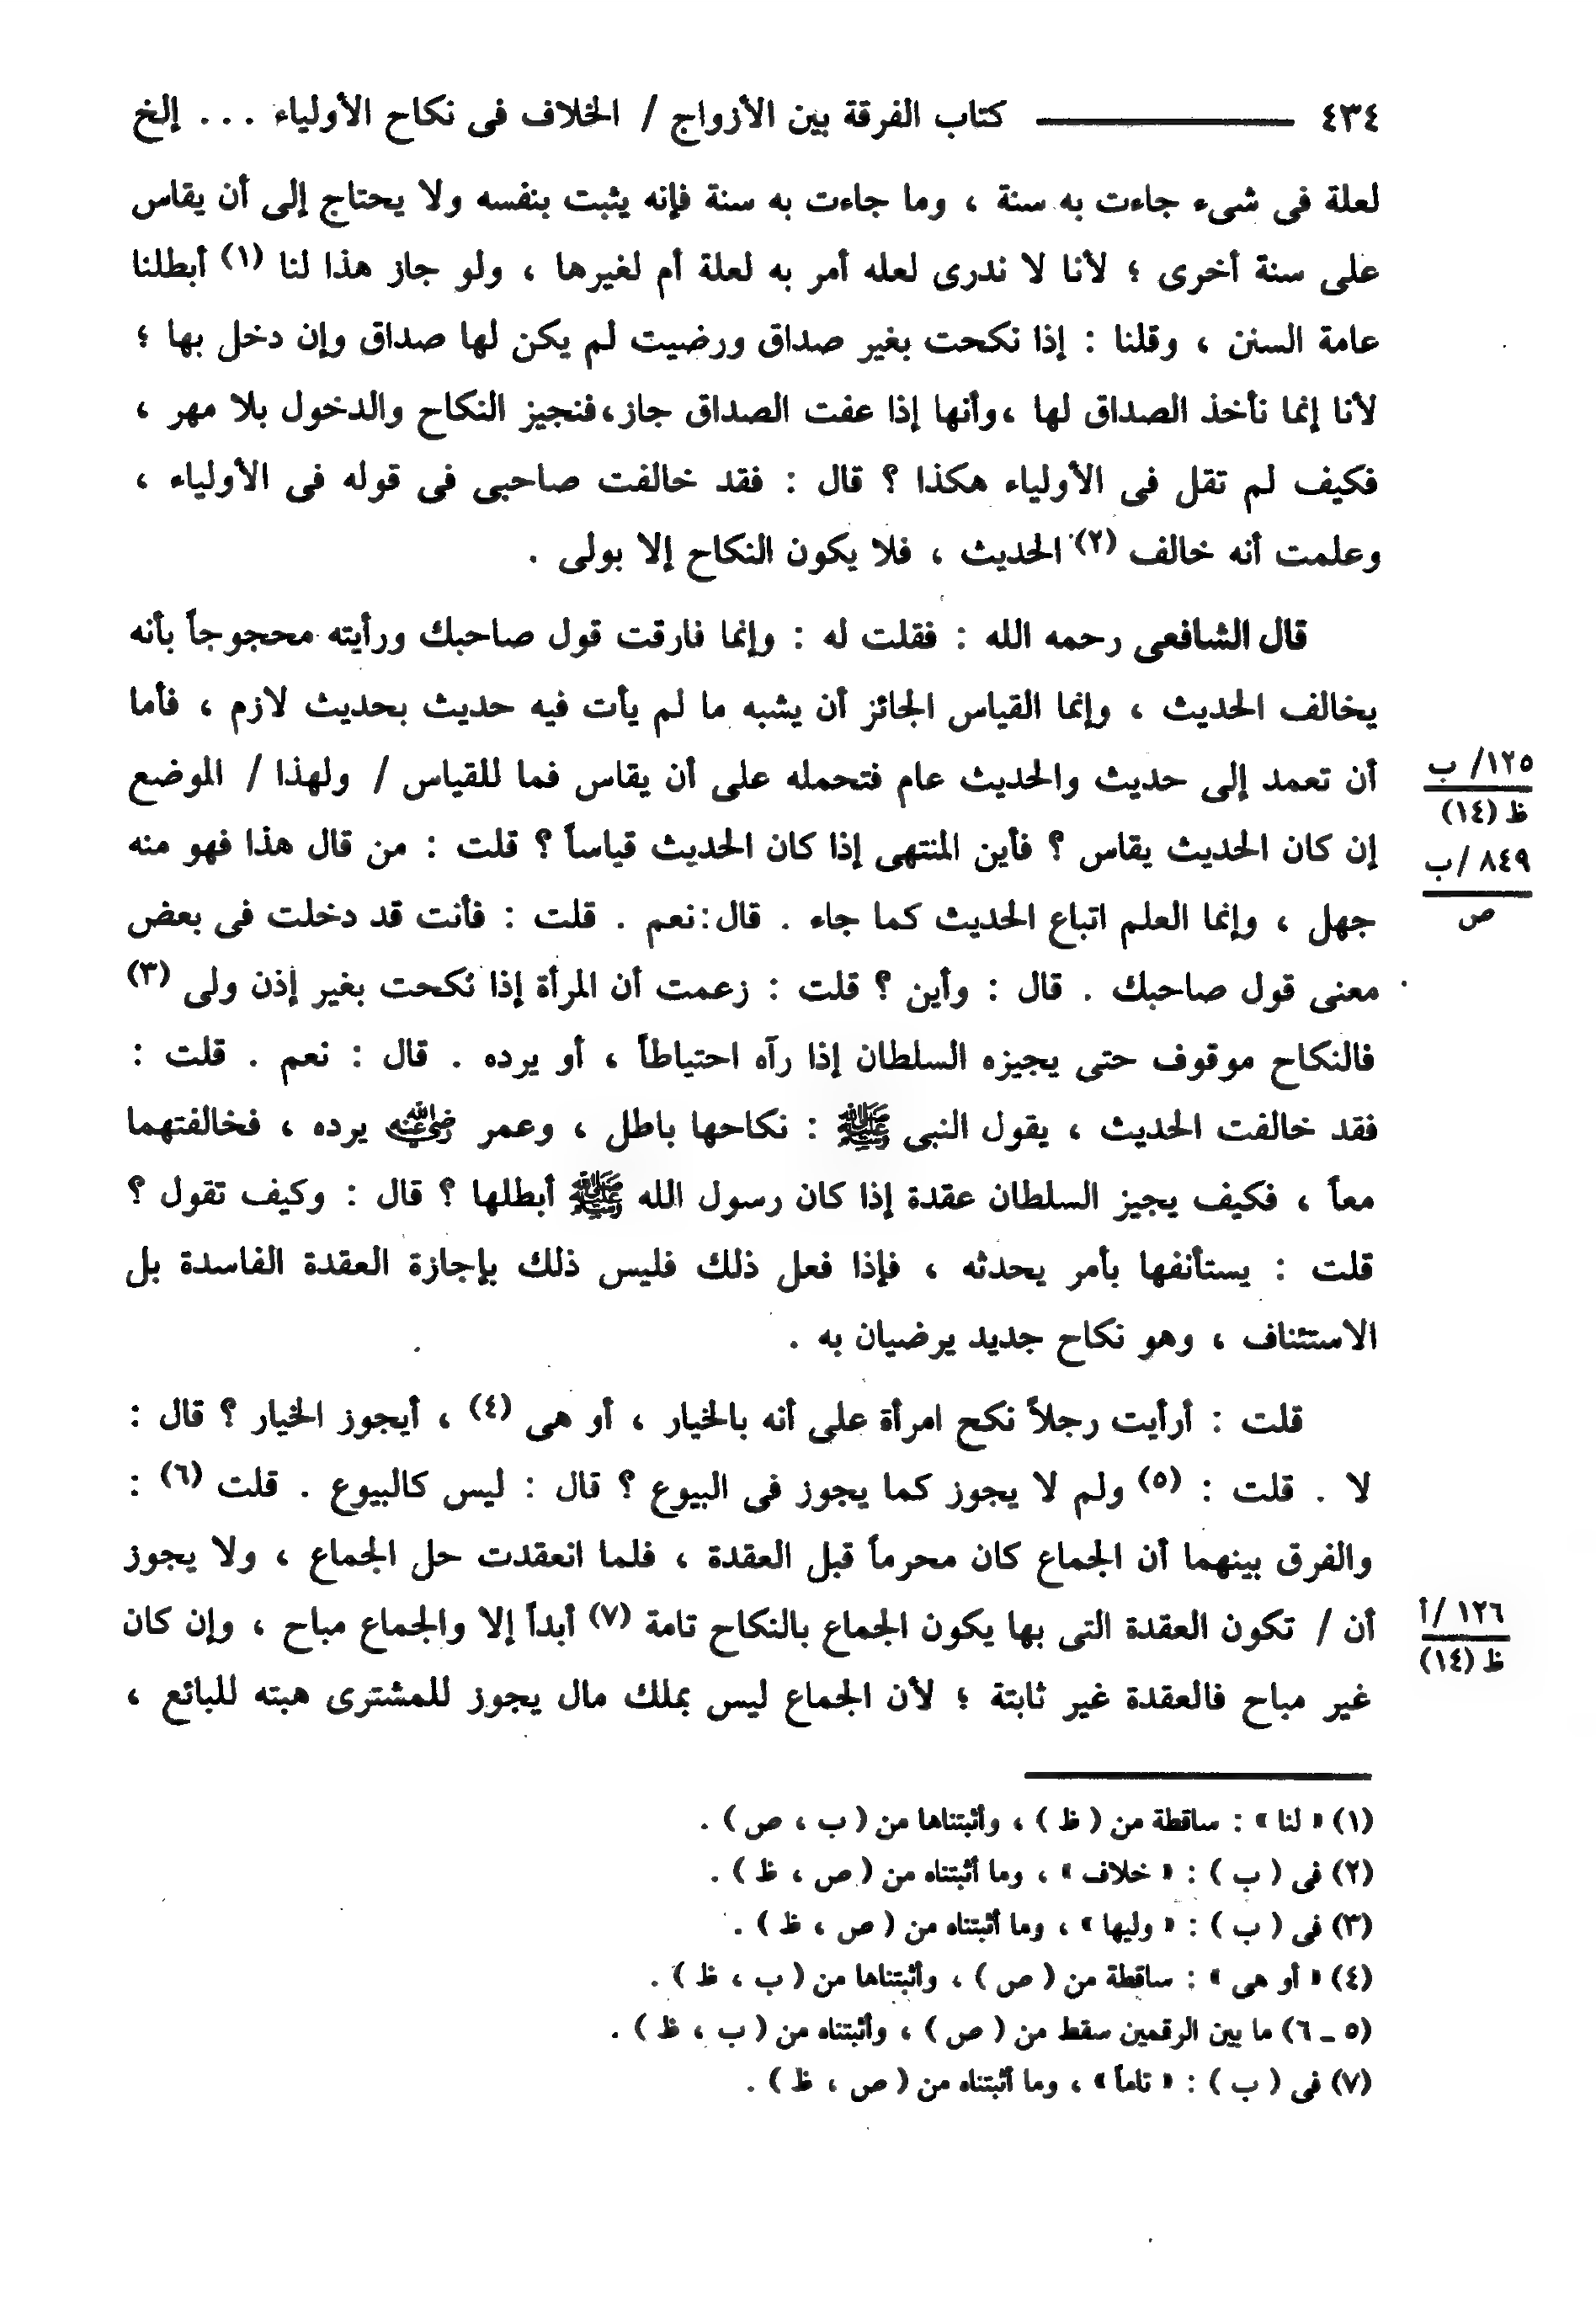 ٤٣٤ ـــــــ كتاب الفرقة بين الأزواج / الخلاف فى نكاح الأولياء . . . إلخ
لعلة فى شىء جاءت به سنة ، وما جاءت به سنة فإنه يثبت بنفسه ولا يحتاج إلى أن يقاس
على سنة أخرى ؛ لأنا لا ندرى لعله أمر به لعلة أم لغيرها ، ولو جاز هذا لنا (١) أبطلنا
عامة السنن ، وقلنا : إذا نكحت بغير صداق ورضيت لم يكن لها صداق وإن دخل بها ؛
لأنا إنما نأخذ الصداق لها ،وأنها إذا عفت الصداق جاز،فنجيز النكاح والدخول بلا مهر ،
فكيف لم تقل فى الأولياء هكذا ؟ قال : فقد خالفت صاحبى فى قوله فى الأولياء ،
وعلمت أنه خالف (٢) الحديث ، فلا يكون النكاح إلا بولى .
قال الشافعى رحمه الله : فقلت له : وإنما فارقت قول صاحبك ورأيته محجوجاً بأنه
يخالف الحديث ، وإنما القياس الجائز أن يشبه ما لم يأت فيه حديث بحديث لازم ، فأما
أن تعمد إلى حديث والحديث عام فتحمله على أن يقاس فما للقياس / ولهذا / الموضع
١٢٥/ ب
ظ (١٤)
إن كان الحديث يقاس ؟ فأين المنتهى إذا كان الحديث قياساً ؟ قلت : من قال هذا فهو منه
٨٤٩ /ب
ص
جهل ، وإنما العلم اتباع الحديث كما جاء . قال:نعم . قلت : فأنت قد دخلت فى بعض
معنى قول صاحبك . قال : وأين ؟ قلت : زعمت أن المرأة إذا نُكحت بغير إذن ولى (٣)
فالنكاح موقوف حتى يجيزه السلطان إذا رآه احتياطاً ، أو يرده . قال : نعم . قلت :
فقد خالفت الحديث ، يقول النبى ﷺ : نكاحها باطل ، وعمر رضي الله عنه يرده ، فخالفتهما
معاً ، فكيف يجيز السلطان عقدة إذا كان رسول الله ﷺ أبطلها ؟ قال : وكيف تقول ؟
قلت : يستأنفها بأمر يحدثه ، فإذا فعل ذلك فليس ذلك بإجازة العقدة الفاسدة بل
الاستئناف ، وهو نكاح جديد يرضيان به .
قلت : أرأيت رجلاً نكح امرأة على أنه بالخيار ، أو هى (٤) ، أيجوز الخيار ؟ قال :
لا . قلت : (٥) ولم لا يجوز كما يجوز فى البيوع ؟ قال : ليس كالبيوع . قلت (٦) :
والفرق بينهما أن الجماع كان محرماً قبل العقدة ، فلما انعقدت حل الجماع ، ولا يجوز
أن / تكون العقدة التى بها يكون الجماع بالنكاح تامة (٧) أبداً إلا والجماع مباح ، وإن كان
١٢٦ /أ
ظ (١٤)
غير مباح فالعقدة غير ثابتة ؛ لأن الجماع ليس بملك مال يجوز للمشترى هبته للبائع ،
(١) « لنا » : ساقطة من ( ظ ) ، وأثبتناها من ( ب ، ص ) .
(٢) فى ( ب ) : « خلاف » ، وما أثبتناه من ( ص ، ظ ) .
(٣) فى ( ب ) : « وليها » ، وما أثبتناه من ( ص ، ظ ) .
(٤) « أو هى » : ساقطة من ( ص ) ، وأثبتناها من ( ب ، ظ ) .
(٥ ـ ٦) ما بين الرقمين سقط من ( ص ) ، وأثبتناه من ( ب ، ظ ) .
(٧) فى ( ب ) : « تاماً » ، وما أثبتناه من ( ص ، ظ ) .